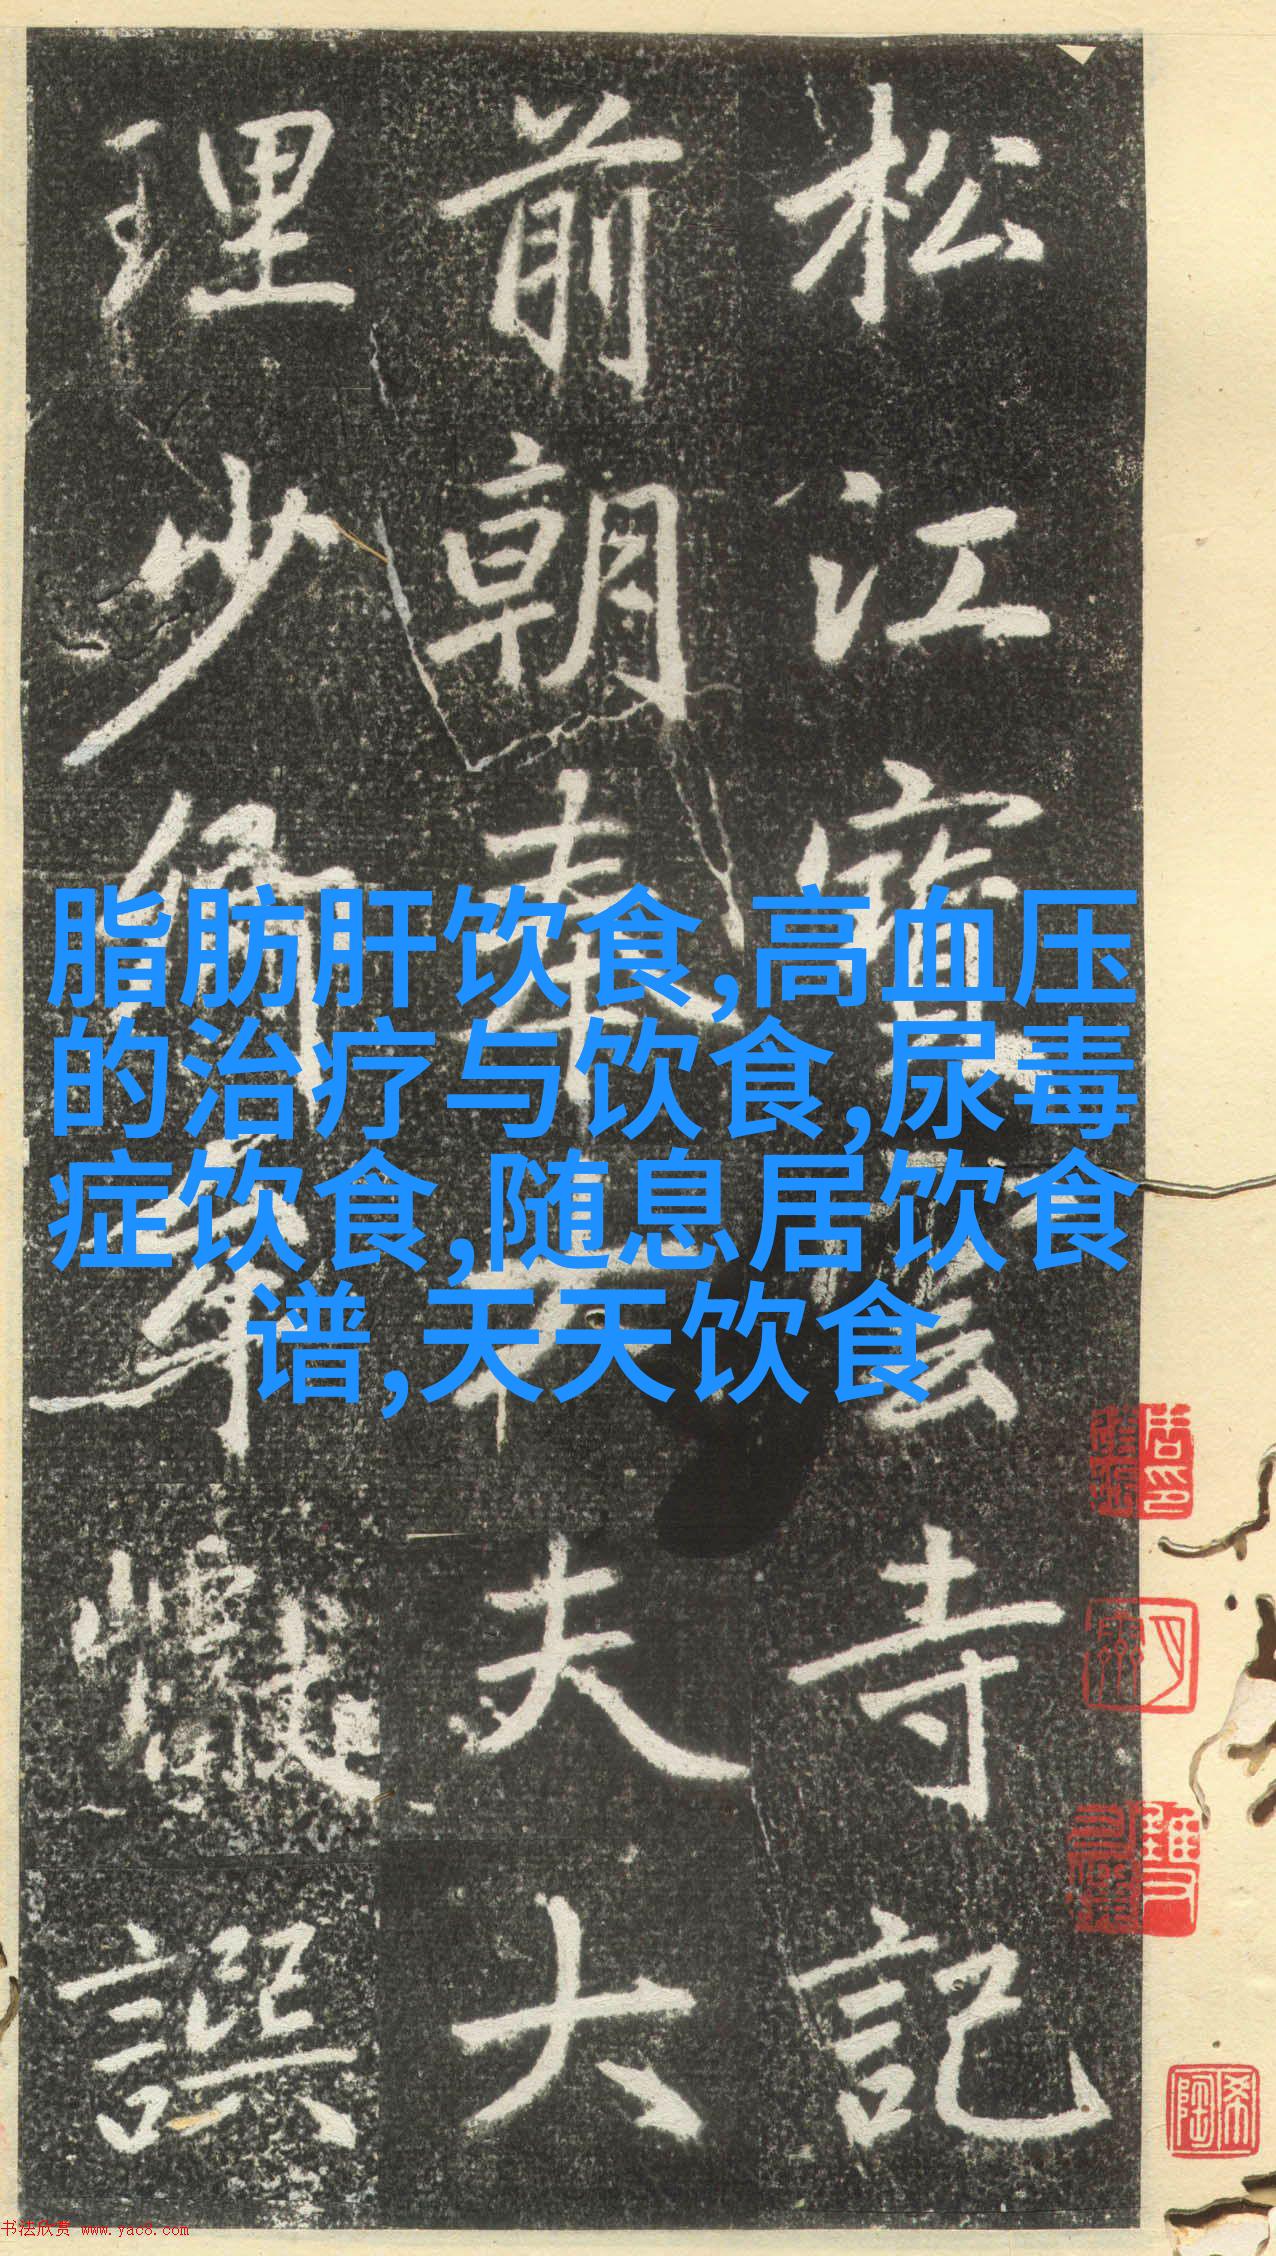 松江寶雲寺記
前朝奉大夫大
理少卿牟巘譔
脂肪肝饮食,高血压
的治疗与饮食,尿毒
症饮食,随息居饮食
谱,天天饮食
希陶
书法欣赏 www.yac8.com